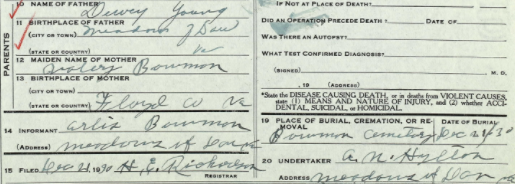 10 NAME OF FATHER Dewey Young
11 BIRTHPLACE OF FATHER
(CITY OR TOWN) Meadows of Dan
(STATE OR COUNTRY) Va
PARENTS
12 MAIDEN NAME OF MOTHER Bowman
13 BIRTHPLACE OF MOTHER
(CITY OR TOWN)
(STATE OR COUNTRY) Floyd Co Va
14 INFORMANT Artis Bowman
(ADDRESS) Meadows of Dan
15 FILED Dec 21, 1930 H. E.
REGISTRAR
IF NOT AT PLACE OF DEATH?
DID AN OPERATION PRECEDE DEATH? DATE OF
WAS THERE AN AUTOPSY?
WHAT TEST CONFIRMED DIAGNOSIS?
(SIGNED) M. D.
, 19 (ADDRESS)
*State the DISEASE CAUSING DEATH, or in deaths from VIOLENT CAUSES,
state (1) MEANS AND NATURE OF INJURY, and (2) whether ACCI-
DENTAL, SUICIDAL, or HOMICIDAL.
19 PLACE OF BURIAL, CREMATION, OR RE- DATE OF BURIAL
MOVAL
Bowman Cemetery Dec 21/30
20 UNDERTAKER A. N. Hylton
ADDRESS Meadows of Dan Va